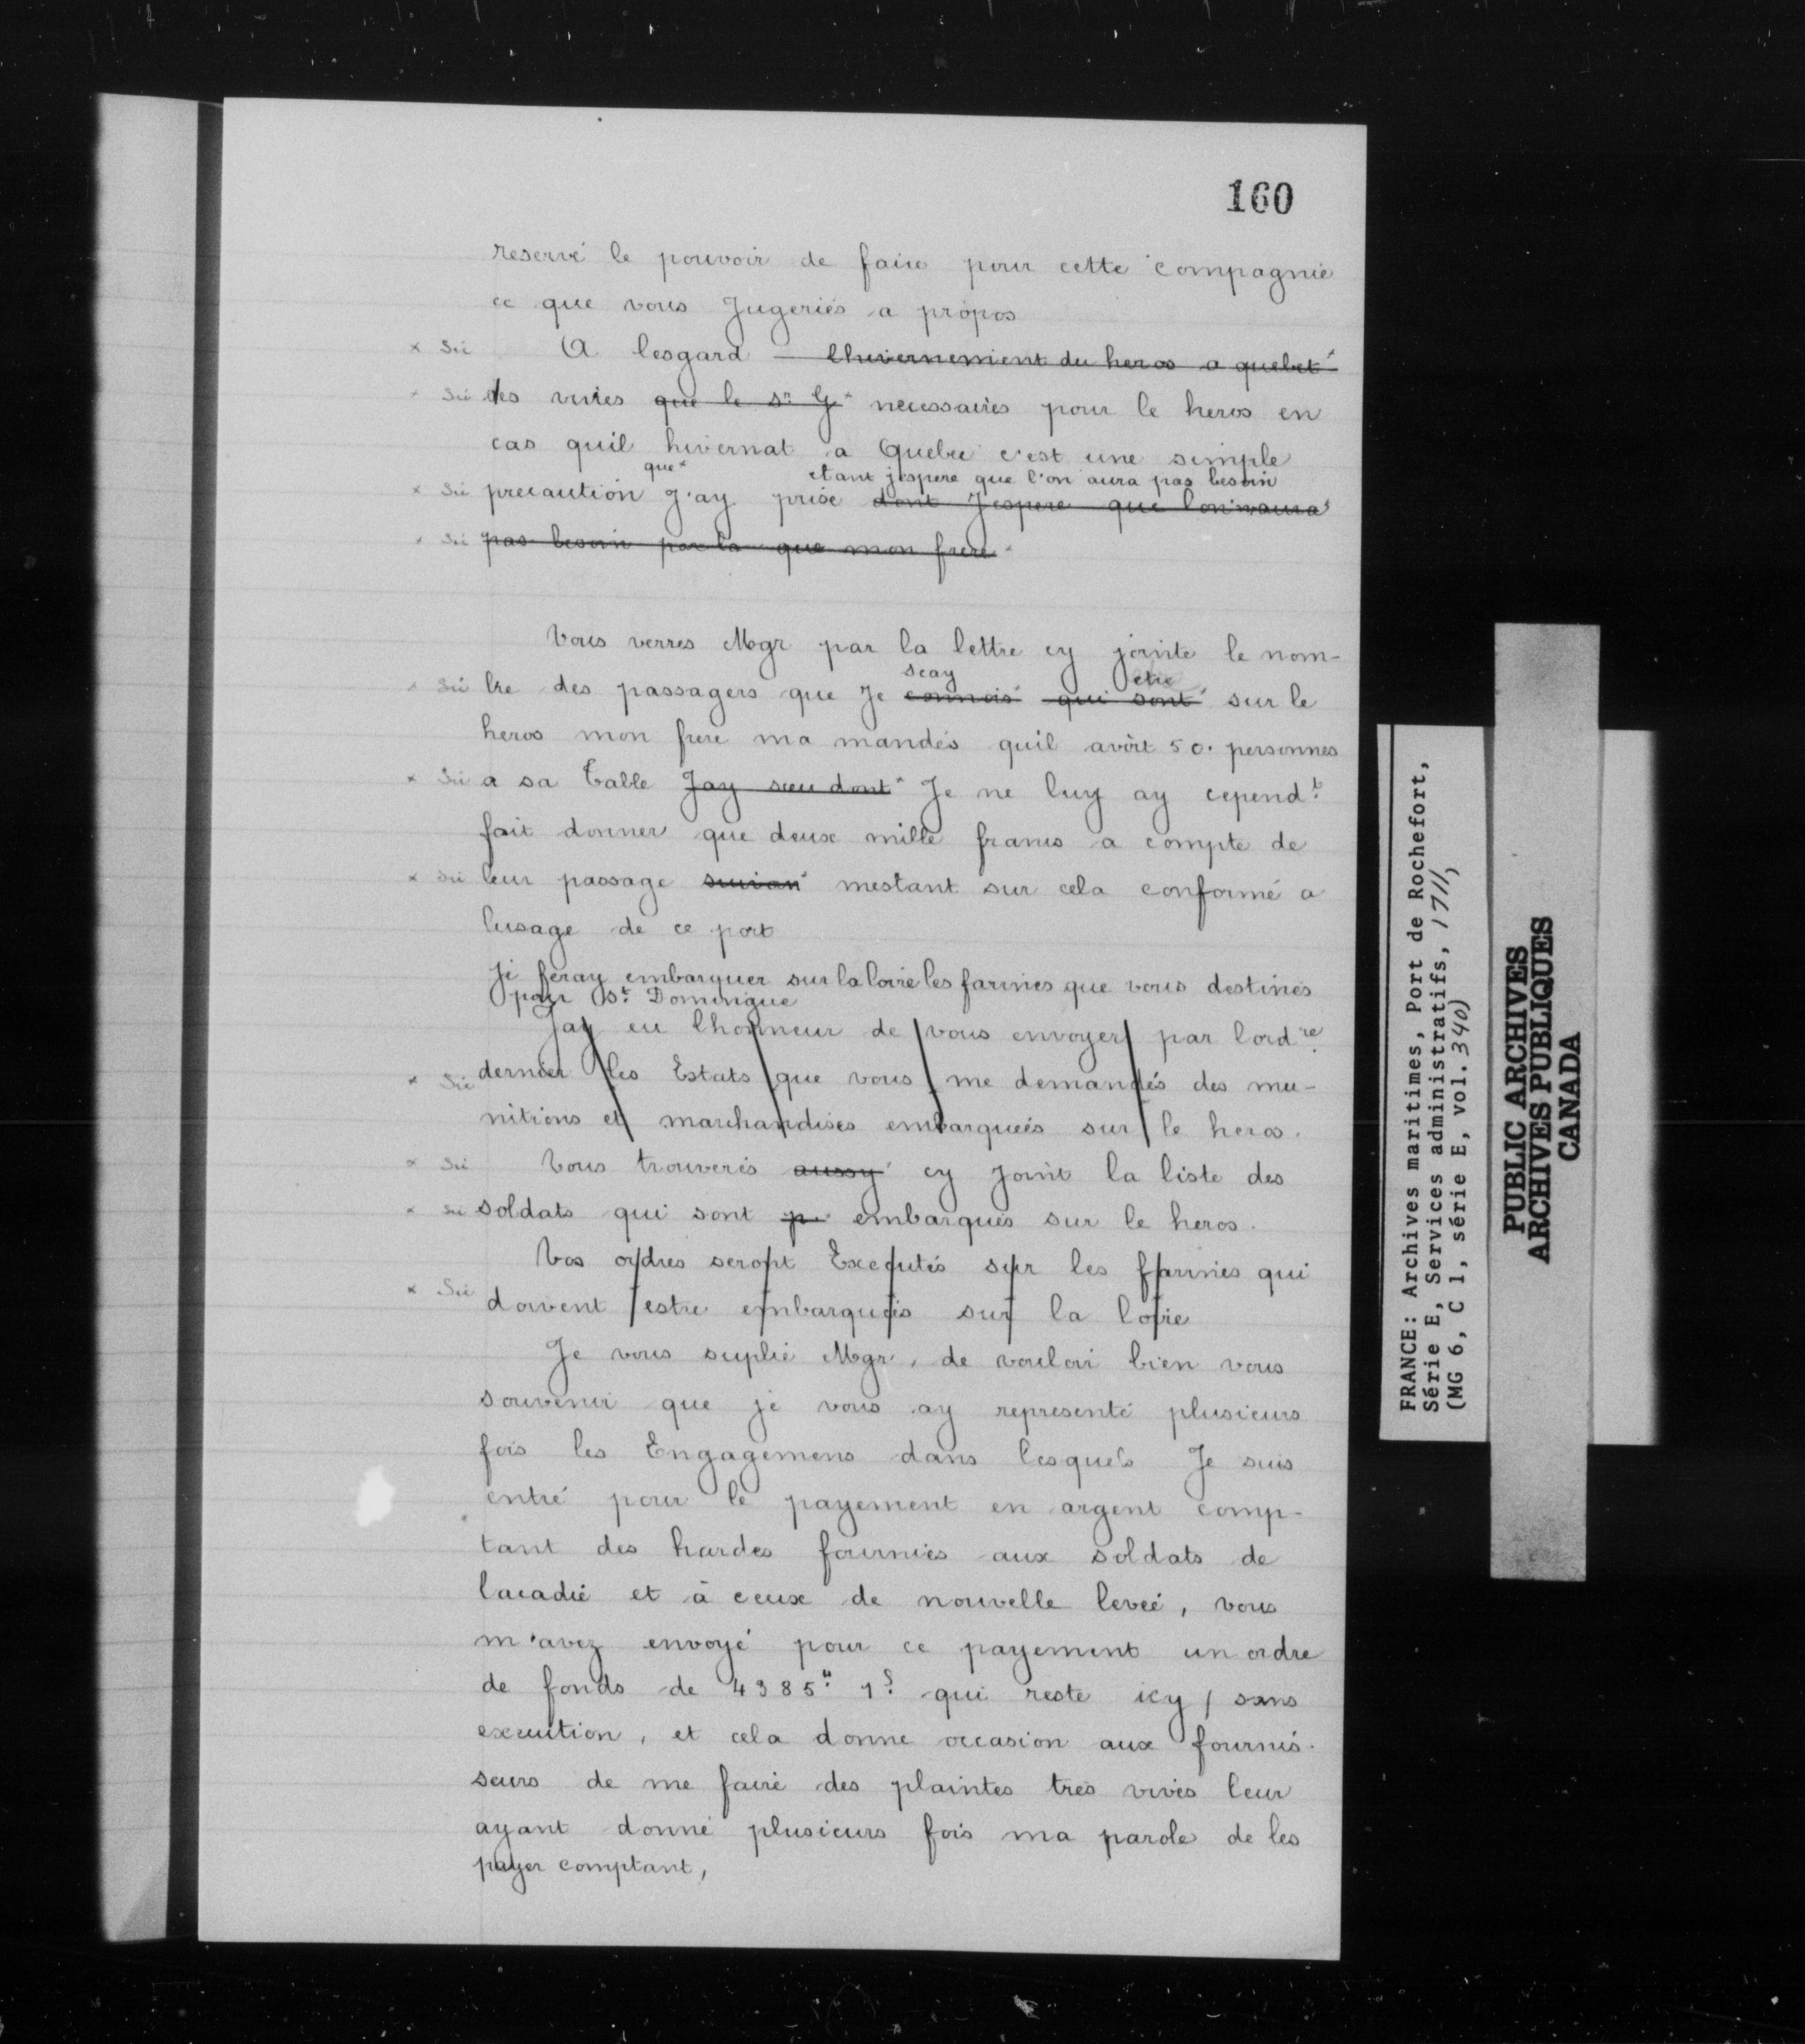 160
reservé le pouvoir de faire pour cette compagnie
ce que vous Jugeriés a propos
x Sic A lesgard lhuivernement du heros a quebet x
x Sic des vivres que le sr. G x necessaires pour le heros en
cas quil hivernat a Quebec c'est une simple
que x etant jespere que l'on aura pas besoin
x Sic precaution J'ay prise dont Jespere que lon naura x
x Sic pas besoin par la que mon frere x
Vous verres Mgr par la lettre cy jointe le nom-
scay etre
x Sic bre des passagers que Je connois qui sont sur le
heros mon frere ma mandés quil avoit 50. personnes
x Sic a sa Table Jay sceu dont x Je ne luy ay cependt
fait donner que deux mille francs a compte de
x Sic leur passage suivan x mestant sur cela conformé a
lusage de ce port
Je feray embarquer sur la loire les farines que vous destinés
pour St. Domingue
Jay eu lhonneur de vous envoyer par lordre
x Sic dernier les Estats que vous me demandés des mu-
nitions et marchandises embarqueés sur le heros.
x Sic Vous trouverés aussy x cy Joint la liste des
x Sic soldats qui sont p embarqués sur le heros.
Vos ordres seront Executés sur les farines qui
x Sic doivent estre embarqueés sur la loire
Je vous suplie Mgr, de vouloir bien vous
souvenir que je vous ay representé plusieurs
fois les Engagemens dans lesquels Je suis
entré pour le payement en argent comp-
tant des hardes fournies aux soldats de
lacadie et à ceux de nouvelle leveé, vous
m'avez envoyé pour ce payement un ordre
de fonds de 4385tt 1s qui reste icy, sans
execution, et cela donne occasion aux fournis-
seurs de me faire des plaintes tres vives leur
ayant donné plusieurs fois ma parole de les
payer comptant,
FRANCE: Archives maritimes, Port de Rochefort,
Série E, Services administratifs, 1711,
(MG 6, C 1, série E, vol. 340)
PUBLIC ARCHIVES
ARCHIVES PUBLIQUES
CANADA